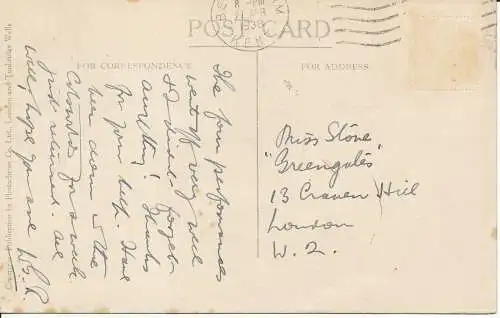 POST CARD
FOR CORRESPONDENCE
FOR ADDRESS.
8 - PM
1938
KENT
The four performances
went off very well
& I didn't forget
anything! Thanks
for your help. Have
been down in the
Cotswolds for a week
just returned. All
well, hope you are
W.G.R.
Miss Stone,
"Greengates"
13 Craven Hill
London
W. 2.
Publication by Photochrom Co. Ltd., London and Tunbridge Wells